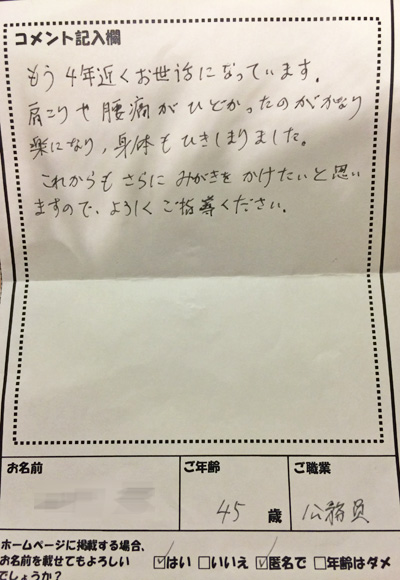 コメント記入欄
もう4年近くお世話になっています。
肩こりや腰痛がひどかったのがかなり
楽になり、身体もひきしまりました。
これからもさらにみがきをかけたいと思い
ますので、よろしくご指導ください。
お名前
ご年齢
ご職業
45 歳
公務員
ホームページに掲載する場合、
お名前を載せてもよろしい
でしょうか？
☑はい □いいえ ☑匿名で □年齢はダメ